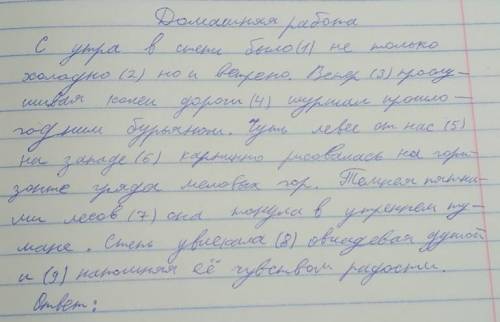 Домашняя работа
С утра в степи было(1) не только
холодно (2) но и ветрено. Ветер (3) просу-
шивая колеи дороги (4) шуршал прошло-
годним бурьяном. Чуть левее от нас (5)
на западе (6) картинно рисовалась на гори-
зонте гряда меловых гор. Темнея пятна-
ми лесов (7) она тонула в утреннем ту-
мане. Степь увлекала (8) овладевая душой
и (9) наполняя её чувством радости.
Ответ: